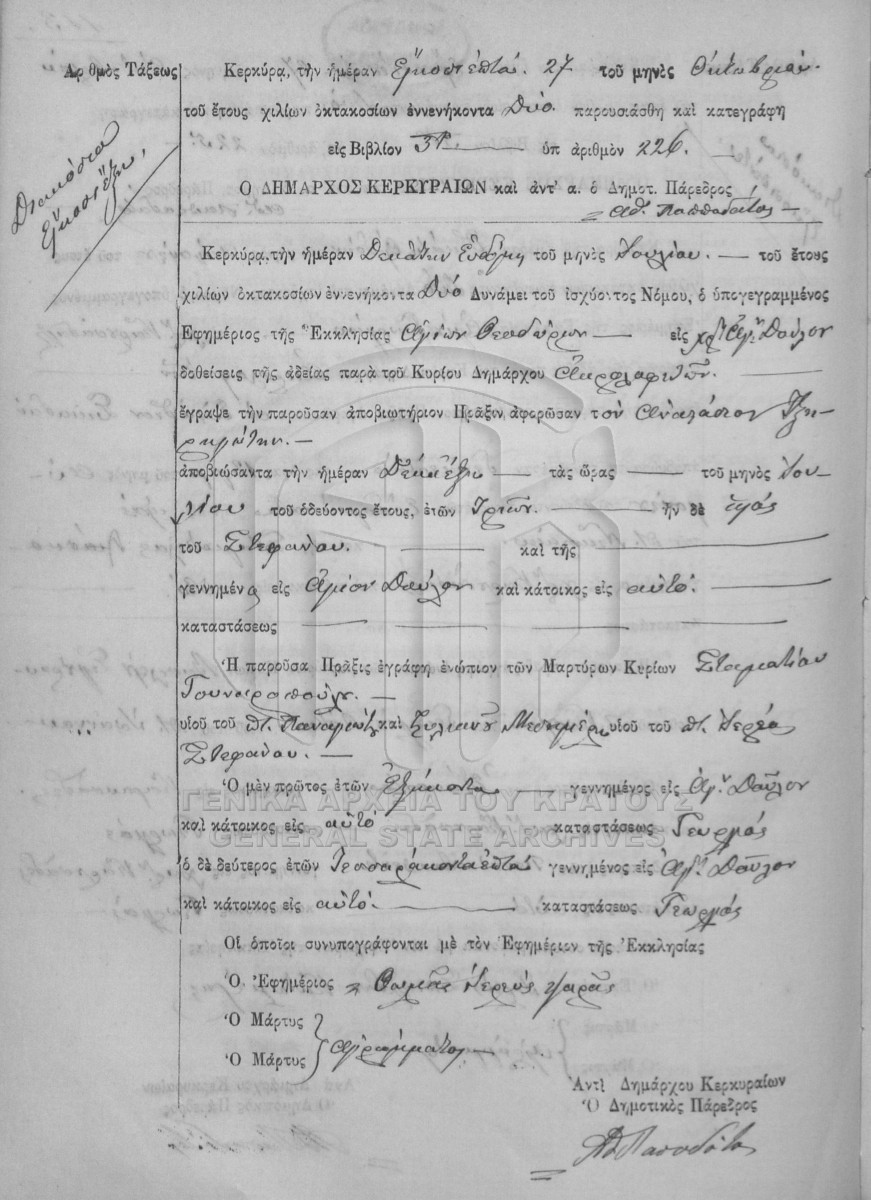 Αριθμὸς Τάξεως
Διακόσια
Εἴκοσι ἕξη
Κερκύρᾳ, τὴν ἡμέραν Εἴκοσι επτά. 27 τοῦ μηνὸς Οκτωβρίου.
τοῦ ἔτους χιλίων ὀκτακοσίων ἐννενήκοντα Δύο παρουσιάσθη καὶ κατεγράφη
εἰς Βιβλίον ὑπ ἀριθμὸν 226.
Ο ΔΗΜΑΡΧΟΣ ΚΕΡΚΥΡΑΙΩΝ καὶ ἀντ' α. ὁ Δημοτ. Πάρεδρος
Αθ. Παππαδάτος
Κερκύρᾳ, τὴν ἡμέραν Δεκάτην Εὐδόμη τοῦ μηνὸς Ἰουλίου. τοῦ ἔτους
χιλίων ὀκτακοσίων ἐννενήκοντα Δύο Δυνάμει τοῦ ἰσχύοντος Νόμου, ὁ ὑπογεγραμμένος
Ἐφημέριος τῆς Ἐκκλησίας Αγίων Θεοδώρων εἰς Αγ. Δοῦλον
δοθείσεις τῆς ἀδείας παρὰ τοῦ Κυρίου Δημάρχου
ἔγραψε τὴν παροῦσαν ἀποβιωτήριον Πρᾶξιν ἀφορῶσαν τὸν Αναστάσιον
ἀποβιώσαντα τὴν ἡμέραν Δέκα ἕξη τὰς ὥρας τοῦ μηνὸς Ἰου-
λίου τοῦ ὁδεύοντος ἔτους, ἐτῶν Τριῶν. ἦν δὲ υἱός
τοῦ Στεφάνου. καὶ τῆς
γεννημένος εἰς Ἅγιον Δοῦλον καὶ κάτοικος εἰς αὐτό.
καταστάσεως
Ἡ παροῦσα Πρᾶξις ἐγράφη ἐνώπιον τῶν Μαρτύρων Κυρίων Σταματίου
Γουναροπούλου.
υἱοῦ τοῦ ποτ. Παναγιώτη καὶ υἱοῦ τοῦ ποτ. Ἱερέα
Στεφάνου.
Ὁ μὲν πρῶτος ἐτῶν Ἑξήκοντα γεννημένος εἰς Ἅγ. Δοῦλον
καὶ κάτοικος εἰς αὐτό καταστάσεως Γεωργός
ὁ δὲ δεύτερος ἐτῶν Τεσσαράκοντα επτά γεννημένος εἰς Ἅγ. Δοῦλον
καὶ κάτοικος εἰς αὐτό. καταστάσεως Γεωργός
Οἱ ὁποῖοι συνυπογράφονται μὲ τὸν Ἐφημέριον τῆς Ἐκκλησίας
Ὁ Ἐφημέριος Θωμᾶς Ἱερεύς Ψαρᾶς
Ὁ Μάρτυς
Ὁ Μάρτυς Αγράμματοι
Ἀντὶ Δημάρχου Κερκυραίων
Ὁ Δημοτικὸς Πάρεδρος
Αθ Παπαδάτος
ΓΕΝΙΚΑ ΑΡΧΕΙΑ ΤΟΥ ΚΡΑΤΟΥΣ
GENERAL STATE ARCHIVES